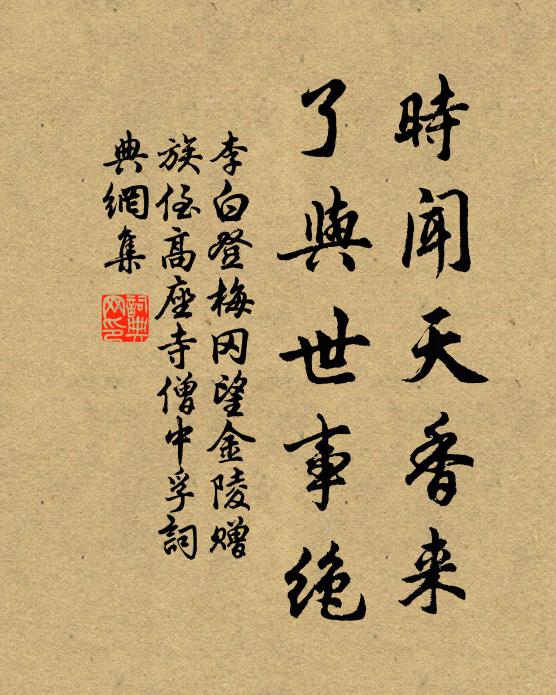 時聞天香来
了與世事绝
李白登梅冈望金陵赠
族侄高座寺僧中孚詞
典網集
詞典
网印